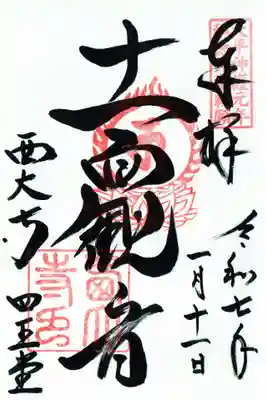 奉拝
令和七年
一月十一日
十一面観音
西大寺 四王堂